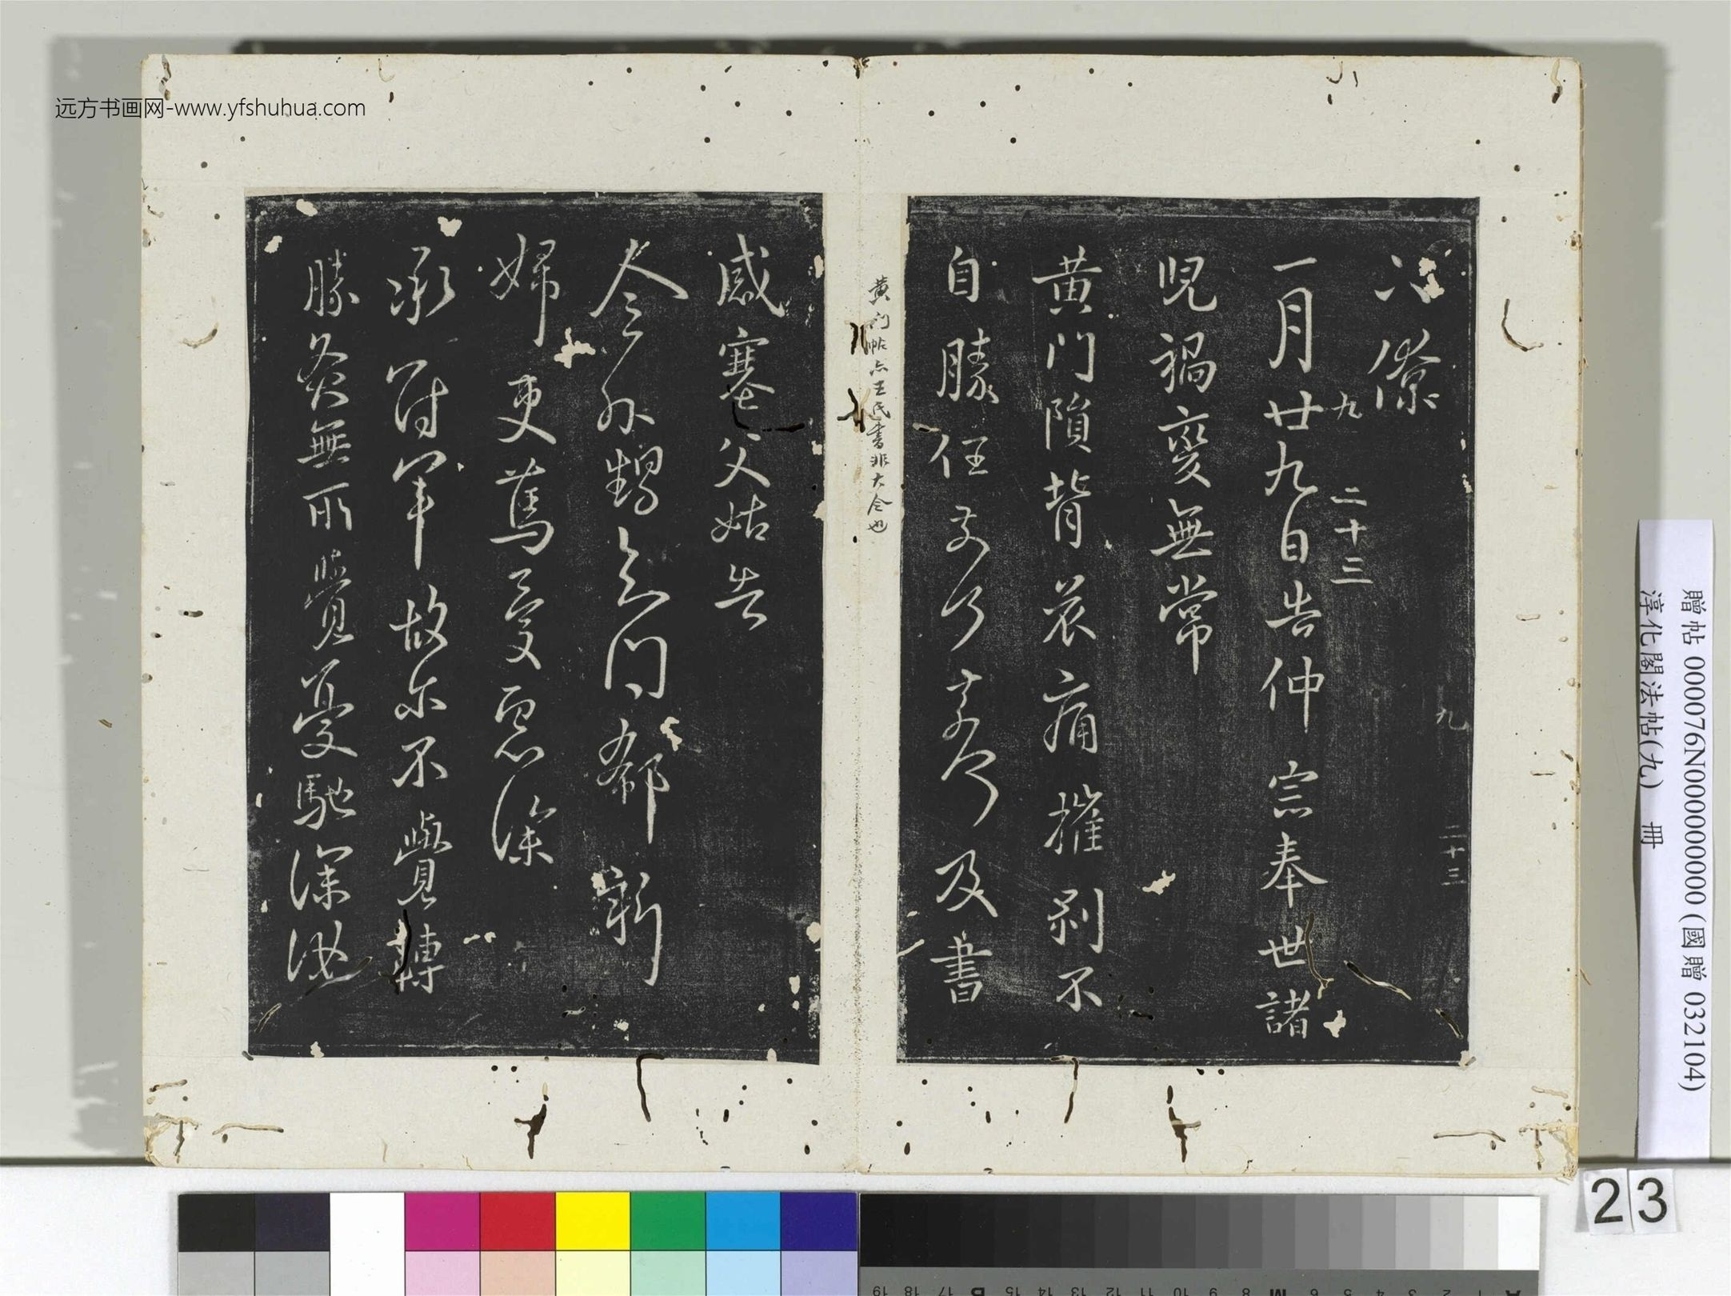 远方书画网-www.yfshuhua.com
冷僚
九 二十三
一月廿九日告仲宗奉世諸
児禍變無常
黄門隕背哀痛摧剥不
自勝任奈何奈何及書
感塞父姑告
黄門帖亦王氏書非大令也
今外鵝 問郗新
婦更篤憂 深
承 軍故尒不覺轉
勝灸無所覺憂馳深汝
九 二十三
贈帖 000076N000000000 (國贈 032104)
淳化閣法帖(九) 冊
23